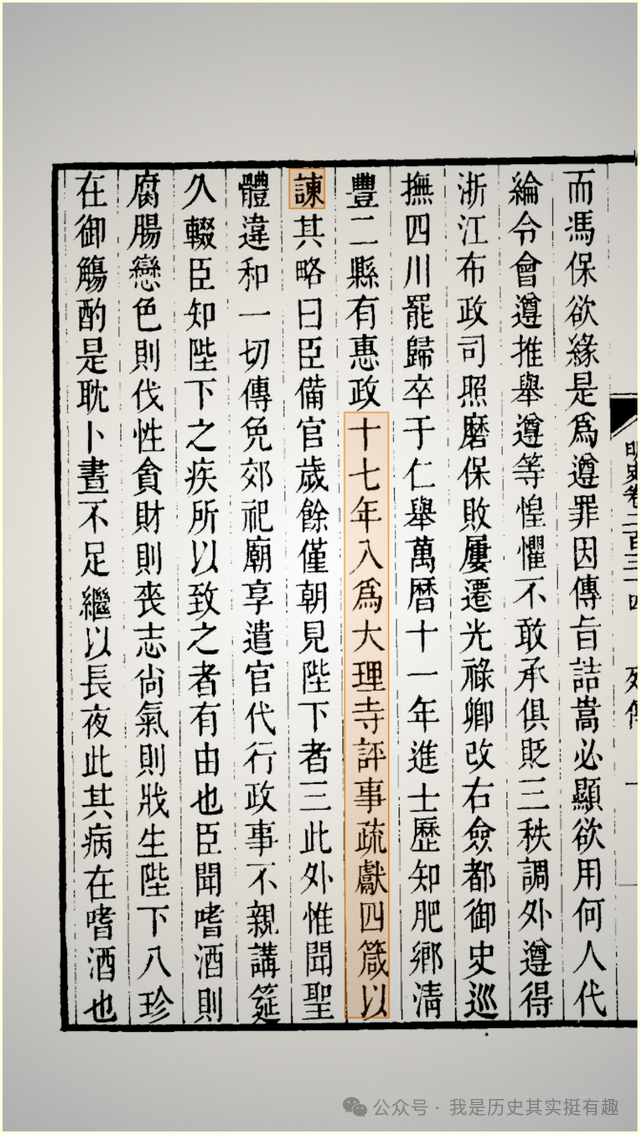 而馮保欲緣是爲遵罪因傳旨詰嵩必顯欲用何人代
綸令會遵推舉遵等惶懼不敢承俱貶三秩調外遵得
浙江布政司照磨保敗屢遷光祿卿改右僉都御史巡
撫四川罷歸卒于仁舉萬曆十一年進士歷知肥鄉清
豐二縣有惠政十七年入爲大理寺評事疏獻四箴以
諫其略曰臣備官歲餘僅朝見陛下者三此外惟聞聖
體違和一切傳免郊祀廟享遣官代行政事不親講筵
久輟臣知陛下之疾所以致之者有由也臣聞嗜酒則
腐腸戀色則伐性貪財則喪志尙氣則戕生陛下八珍
在御觴酌是耽卜晝不足繼以長夜此其病在嗜酒也
明史卷二百三十四 列傳 一
公众号 · 我是历史其实挺有趣